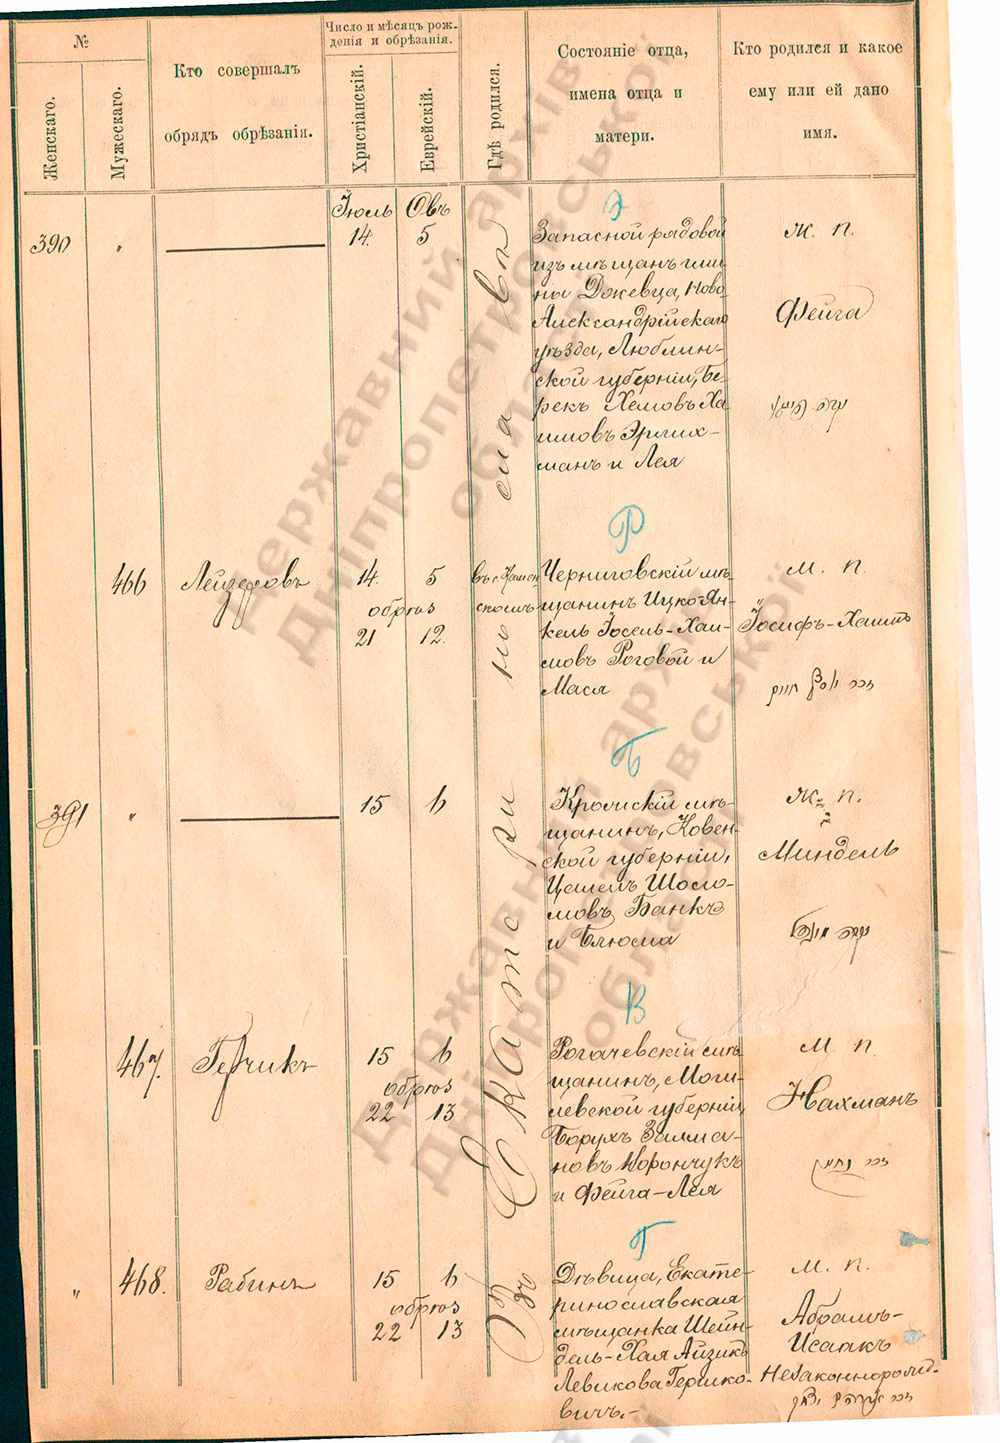 №
Женскаго.
Мужескаго.
Кто совершалъ
обрядъ обрѣзанія.
Число и мѣсяцъ рож-
денія и обрѣзанія.
Христіанскій.
Еврейскій.
Гдѣ родился.
Состояніе отца,
имена отца и
матери.
Кто родился и какое
ему или ей дано
имя.
Въ Екатеринославѣ
Іюль Овъ
390 „ 14. 5
Э
Запасной рядовой
изъ мѣщанъ гми
ны Джевца, Ново
Александрійскаго
уѣзда, Люблин-
ской губерніи, Бе-
рекъ Хемовъ Ха
имовъ Эрлих-
манъ и Лея
Ж. П.
Фейга
466 Лейзеровъ 14. 5
обрѣз
21 12.
въ с. Камен
скомъ
Р
Черниговскій мѣ-
щанинъ Ицко-Ян-
кель Іосель-Хаи-
мовъ Роговой и
Мася
М. П.
Іосифъ-Хаимъ
391 „ 15 6
Б
Кромскій мѣ-
щанинъ, Ковен-
ской губерніи,
Шоло-
мовъ Банкъ
и Блюма
Ж. П.
Миндель
467. Герчикъ 15 6
обрѣз
22 13
В
Рогачевскій мѣ
щанинъ, Моги-
левской губерніи,
Борухъ Залма-
новъ Ворончукъ
и Фейга-Лея
М. П.
Нахманъ
„ 468. Рабинъ 15 6
обрѣз
22 13
Г
Дѣвица, Екате-
ринославская
мѣщанка Шейн-
дель-Хая Айзикъ
Левикова Гершко-
вичъ.-
М. П.
Абрамъ-
Исаакъ
Незаконнорожд.
Державний архів
Дніпропетровської
області
Державний архів
Дніпропетровської
області